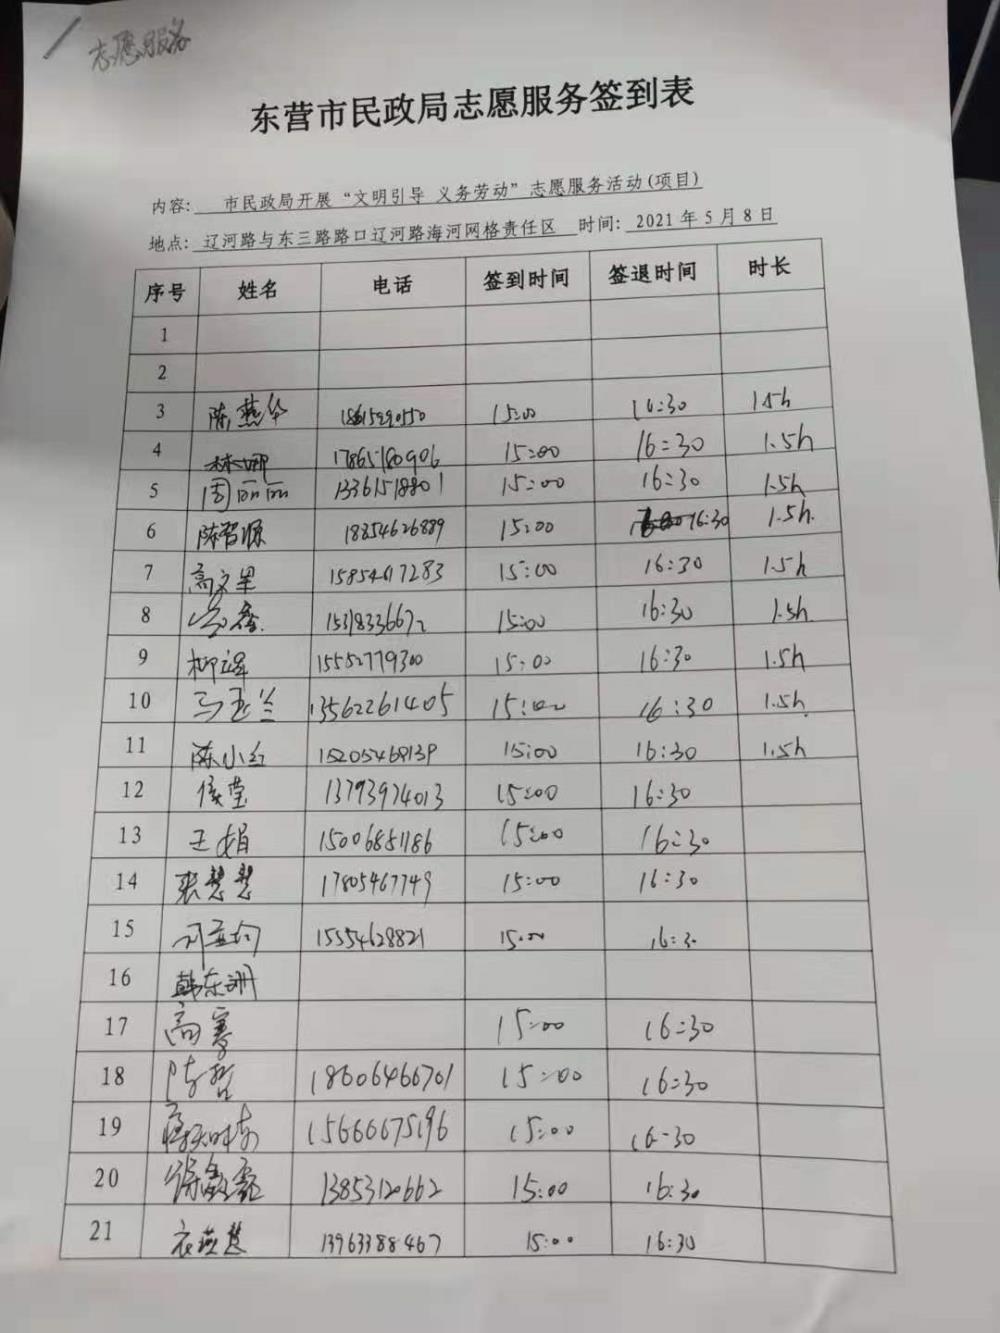 志愿服务
东营市民政局志愿服务签到表
内容: 市民政局开展“文明引导 义务劳动”志愿服务活动(项目)
地点: 辽河路与东三路路口辽河路海河网格责任区 时间: 2021年5月8日
序号 姓名 电话 签到时间 签退时间 时长
1
2
3 陈燕华 15:00 16:30 1.5h
4 林娜 17865180906 15:00 16:30 1.5h
5 周丽丽 13361518801 15:00 16:30 1.5h
6 陈智源 18354626889 15:00 16:30 1.5h.
7 15854617283 15:00 16:30 1.5h
8 15318336672 15:00 16:30 1.5h
9 15552779300 15:00 16:30 1.5h
10 马玉兰 13562261405 15:00 16:30 1.5h
11 陈小红 15205469139 15:00 16:30 1.5h
12 侯莹 13793974013 15:00 16:30
13 王娟 15006851186 15:00 16:30
14 张慧慧 17805467749 15:00 16:30
15 15554628821 15:00 16:30
16 韩东洲
17 高骞 15:00 16:30
18 陈哲 18606466701 15:00 16:30
19 15666675196 15:00 16:30
20 徐鑫磊 13853120662 15:00 16:30
21 衣燕慧 13963388467 15:00 16:30